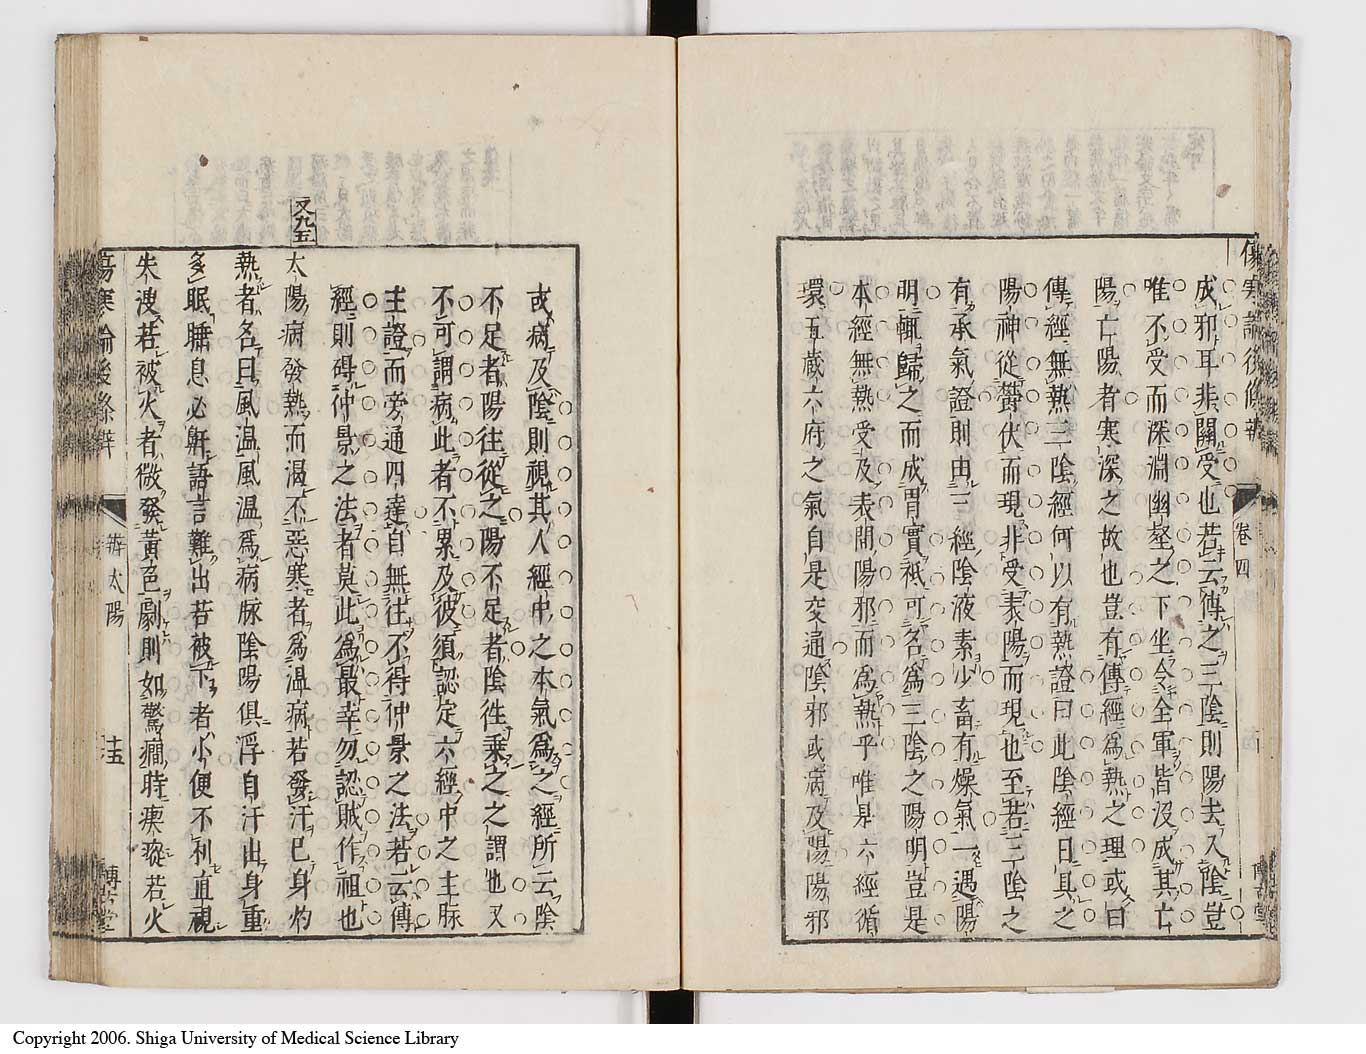 傷寒論後條辨 卷四 博古堂
成邪耳非關受也若云傳之三陰則陽去入陰豈
唯不受而深淵幽壑之下坐令全軍皆沒成其亡
陽亡陽者寒深之故也豈有傳經爲熱之理或曰
傳經無熱三陰經何以有熱證曰此陰經日具之
陽神從贊伏而現非受表陽而現也至若三陰之
有承氣證則由三經陰液素少畜有燥氣一遇陽
明輒歸之而成胃實祇可名爲三陰之陽明豈是
本經無熱受及表間陽邪而爲熱乎唯是六經循
環五蔵六府之氣自是交通陰邪或病及陽陽邪
或病及陰則視其人經中之本氣爲之經所云陰
不足者陽往從之陽不足者陰往乘之之謂也又
不可謂病此者不累及彼須認定六經中之主脉
主證而旁通四達自無往不得仲景之法若云傳
經則碍仲景之法者莫此爲最幸勿認賊作祖也
又九五
太陽病發熱而渴不惡寒者爲温病若發汗已身灼
熱者名曰風温風温爲病脉陰陽俱浮自汗出身重
多眠睡息必鼾語言難出若被下者小便不利直視
失溲若被火者微發黃色劇則如驚癇時瘈瘲若火
傷寒論後條辨 辨太陽 十五 博古堂
Copyright 2006. Shiga University of Medical Science Library